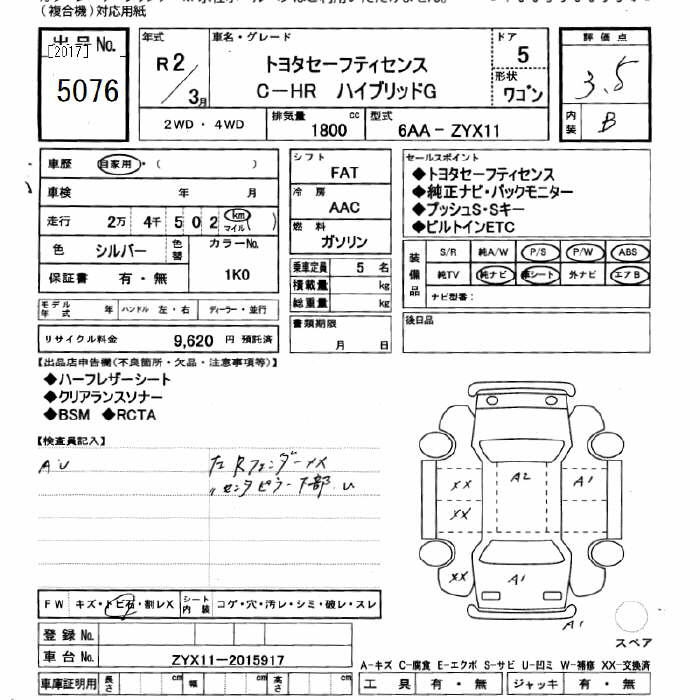 (複合機)対応用紙
出品No.
[2017]
5076
年式
R2/3月
車名・グレード
トヨタセーフティセンス
C-HR ハイブリッドG
ドア
5
形状
ワゴン
評価点
3.5
内装
B
2WD・4WD
排気量
1800 cc
型式
6AA-ZYX11
車歴 自家用・( )
車検 年 月
走行 2万 4千 5 0 2 km マイル ( )
色 シルバー
色替
カラーNo.
1K0
保証書 有・無
モデル年式 年 ハンドル 左・右 ディーラー・並行
リサイクル料金 9,620 円 預託済
シフト
FAT
冷房
AAC
燃料
ガソリン
乗車定員 5 名
積載量 kg
総重量 kg
書類期限
月 日
セールスポイント
◆トヨタセーフティセンス
◆純正ナビ・バックモニター
◆プッシュS・Sキー
◆ビルトインETC
装備品
S/R 純A/W P/S P/W ABS
純TV 純ナビ 革シート 外ナビ エアB
ナビ型番:
後日品
【出品店申告欄(不良箇所・欠品・注意事項等)】
◆ハーフレザーシート
◆クリアランスソナー
◆BSM ◆RCTA
【検査員記入】
AU
左Rフェンダー XX
〃センタピラー下部 U
A2
A1
XX
XX
XX
A1
A1
スペア
FW キズ・トビ石・割レX
シート内装 コゲ・穴・汚レ・シミ・破レ・スレ
登録No.
車台No. ZYX11-2015917
車庫証明用 長さ cm 幅 cm 高さ cm
A-キズ C-腐食 E-エクボ S-サビ U-凹ミ W-補修 XX-交換済
工具 有・無 ジャッキ 有・無